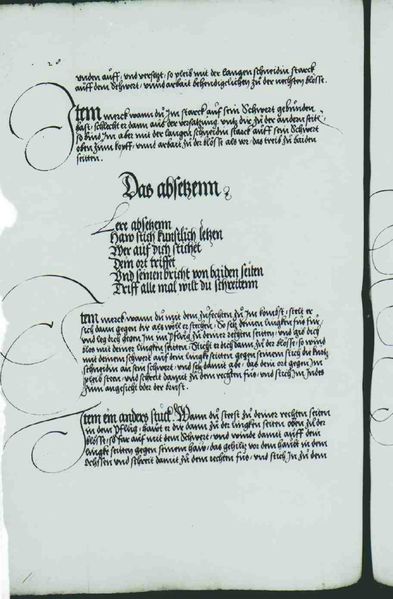 unden auff, und versetzt, so pleib mit der langen schneidin starck
auff dem Schwert, unnd arbait behendigclichen zu der nechsten blosse.
Item merck wann du Im starck auf sein Schwert gebunden
hast, schlecht er dann aus der versatzung umb dir zu der andern seite,
so bind Im aber mit der langen schneidin starck auff sein Schwert
oben zum kopff, unnd arbait zu der blösse als vor, das treib zu baiden
seitten.
Das absetzenn
Lere absetzenn
Haw stich künstlich letzen
Wer auf dich stichet
Dem ort triffet
Und seinen bricht von baiden seiten
Triff alle mal willt du schreittenn
Item merck wann du mit dem zufechten zu Im kumbst, stelt er
sich dann gegen dir als wöll er stechen, So setz deinen lingken fus für,
und leg dich gegen Im Im pflug zu deiner rechten seitten, und gib dich
blos mit deiner lingken seitten, Sticht er dich dann zu der blösse, so wind
mit deinem schwert auf dein lingke seitten gegen seinem stich die kurtz
schneidin an sein schwert, und setz damit abe, das dein ort gegen Im
pleib steen, und schreit damit zu dem rechten fus, und stich Im Indes
zum angesicht oder der brust.
Item ein anders stuck Wann du steest zu deiner rechten seiten
in dem Pflug, hawt er dir dann zu der lingken seiten oben zu der
blösse, so far auf mit dem Schwert, und winde damit auff dein
lingke seitten gegen seinem haw, das gehiltz vor dem haubt in den
Ochssen und schreit damit zu dem rechten fus, und stich In zu dem